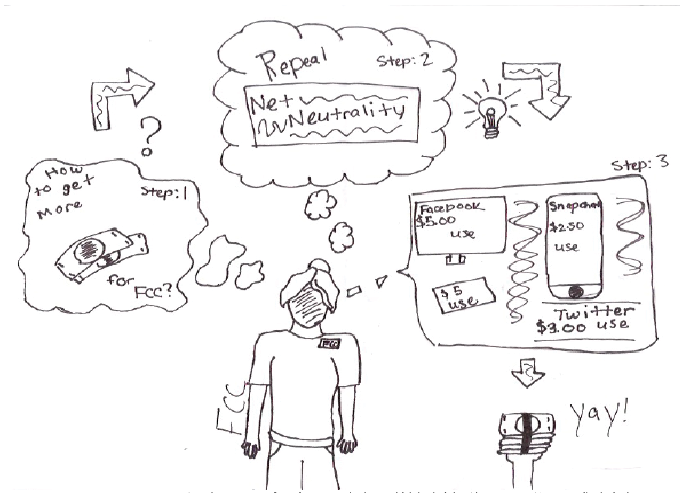 How
to get
more
Step:1
for
FCC?
?
Repeal
Step:2
Net
Neutrality
Step:3
Facebook
$5.00
use
$5
use
Snapchat
$2.50
use
Twitter
$3.00 use
FCC
FCC
yay!